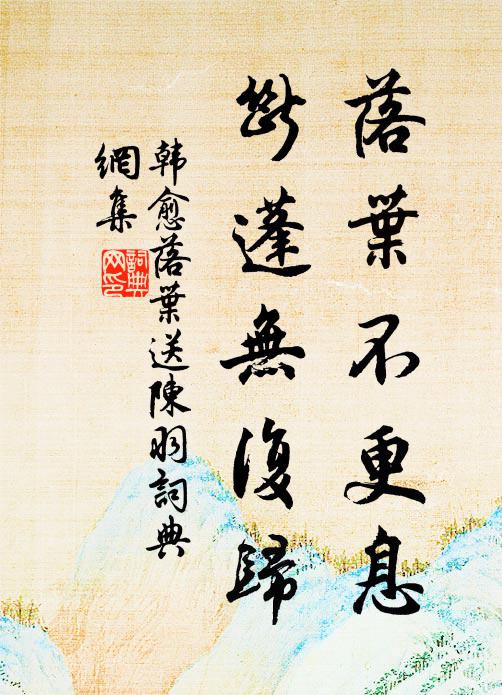 落葉不更息
斷蓬無復歸
韩愈落葉送陳羽詞典
網集
詞典
网印